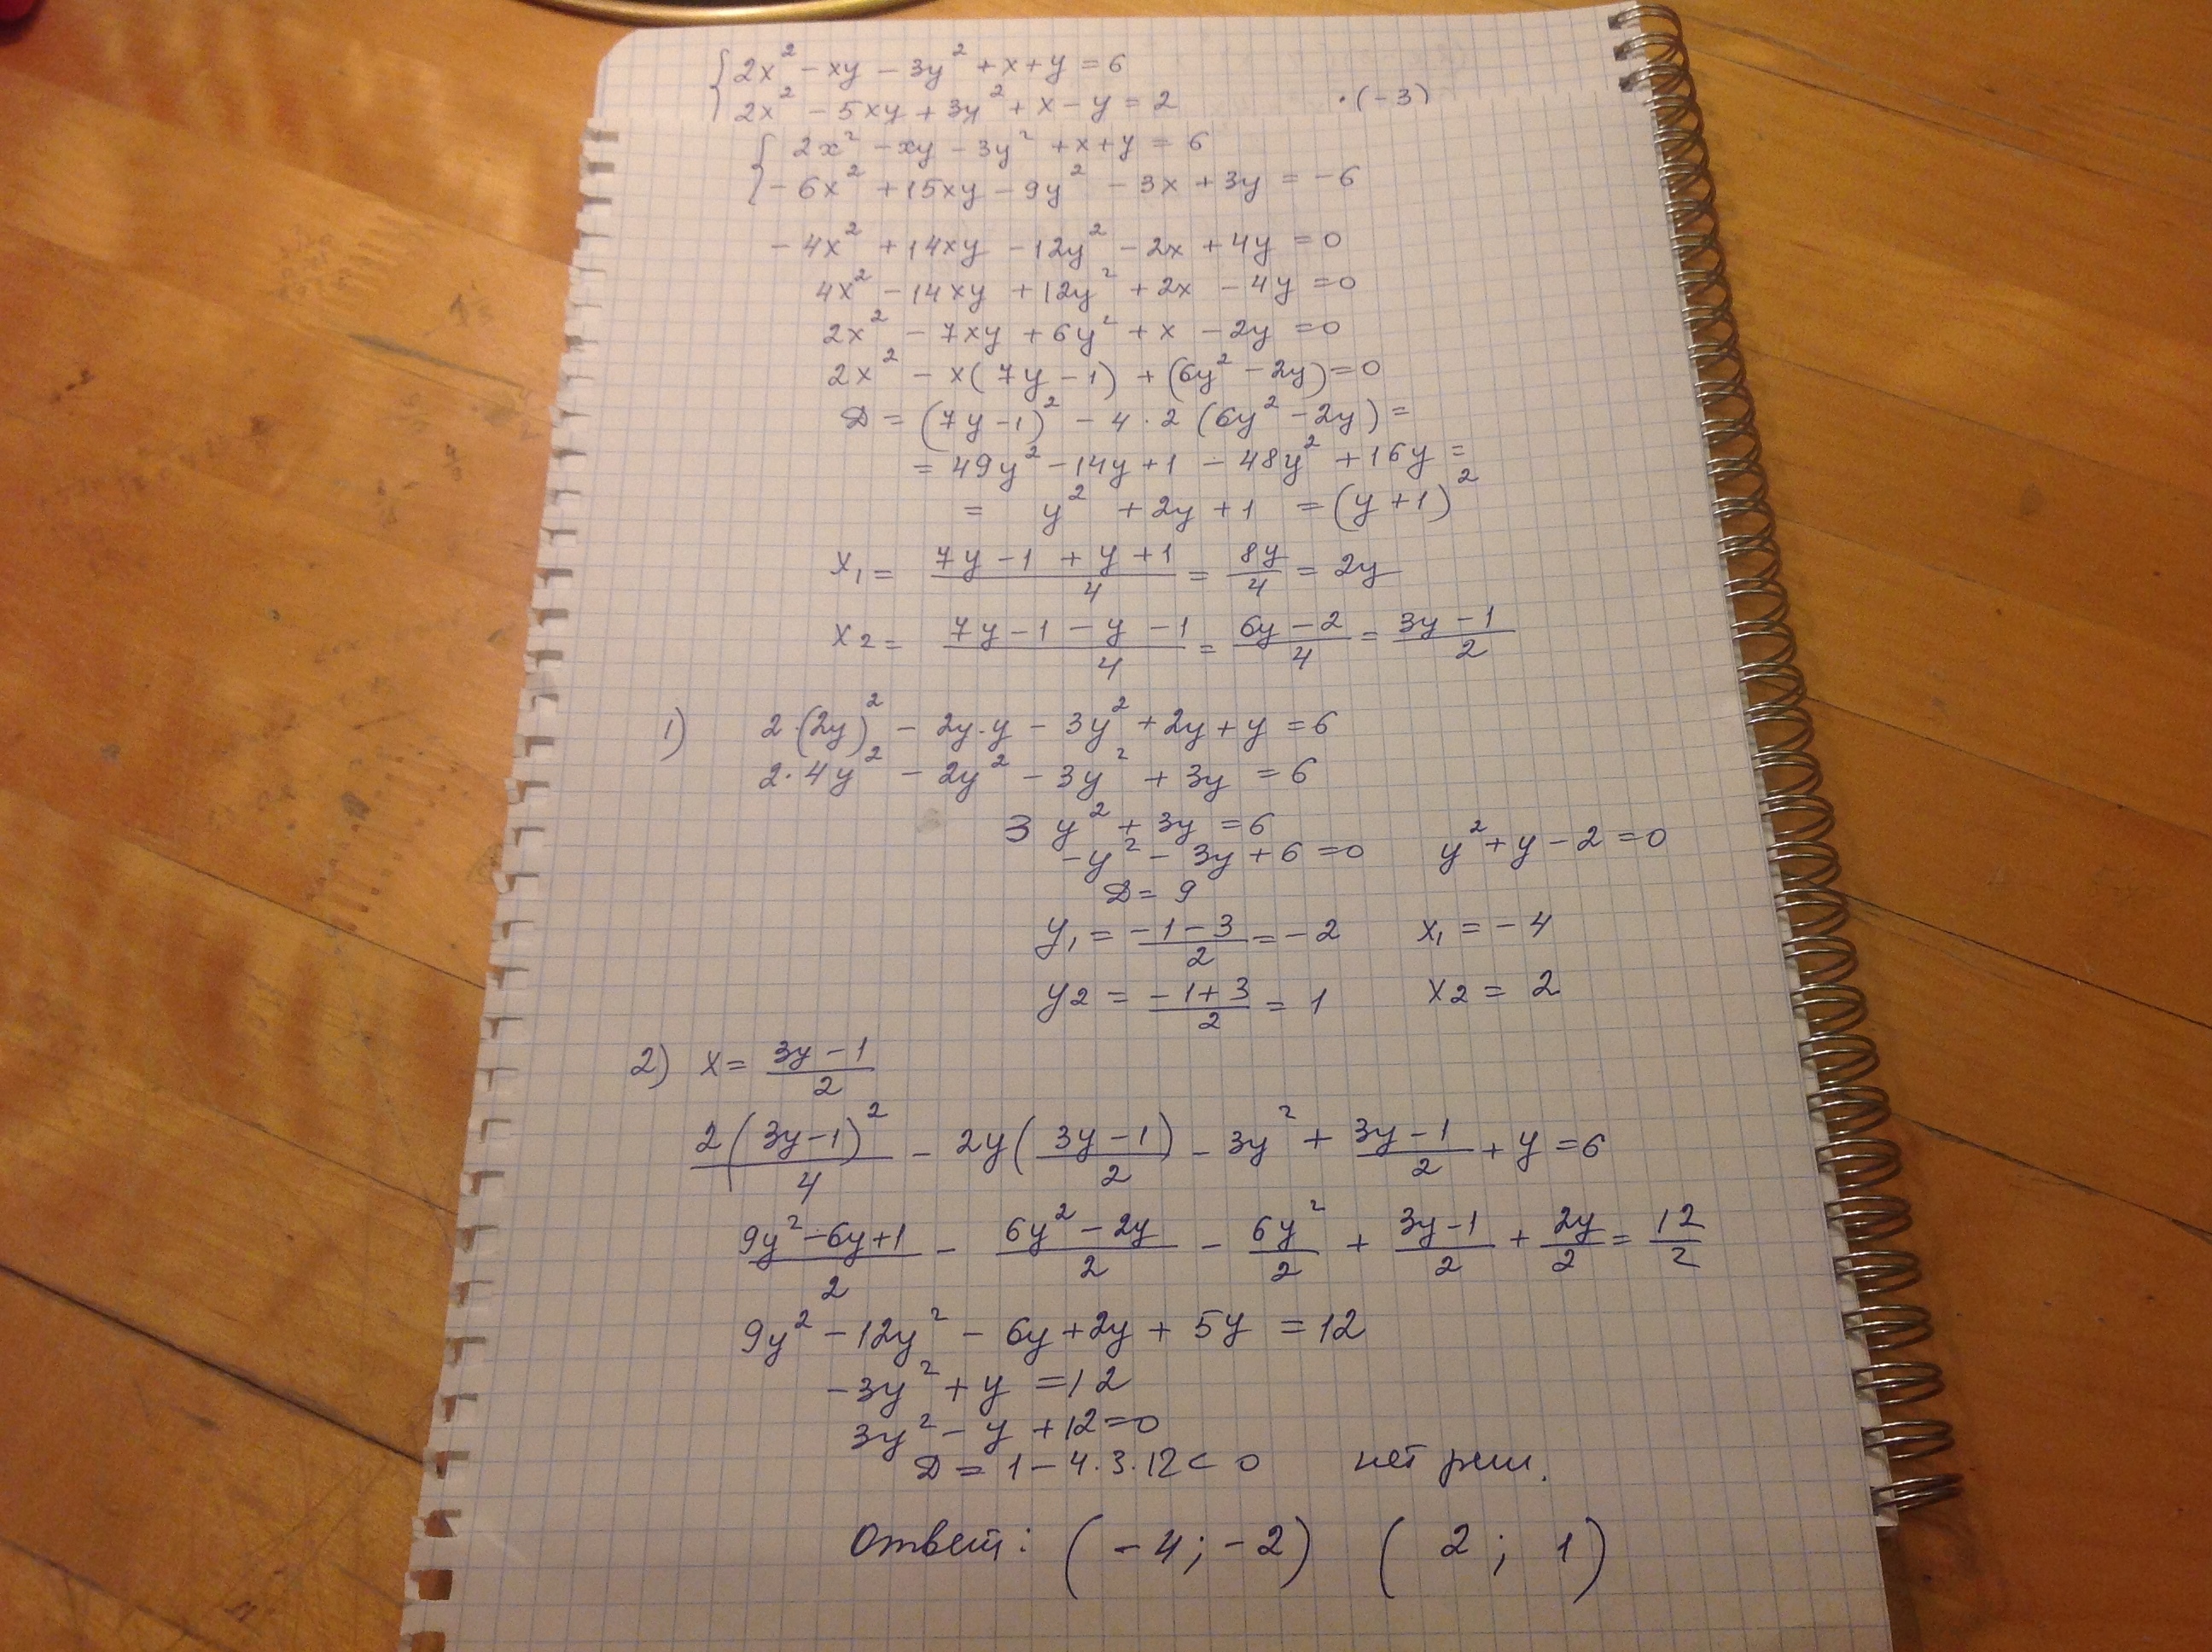 {2x² - xy - 3y² + x + y = 6
{2x² - 5xy + 3y² + x - y = 2 ·(-3)
{2x² - xy - 3y² + x + y = 6
{-6x² + 15xy - 9y² - 3x + 3y = -6
-4x² + 14xy - 12y² - 2x + 4y = 0
4x² - 14xy + 12y² + 2x - 4y = 0
2x² - 7xy + 6y² + x - 2y = 0
2x² - x(7y - 1) + (6y² - 2y) = 0
D = (7y - 1)² - 4 · 2 (6y² - 2y) =
= 49y² - 14y + 1 - 48y² + 16y =
= y² + 2y + 1 = (y + 1)²
x₁ = (7y - 1 + y + 1)/4 = 8y/4 = 2y
x₂ = (7y - 1 - y - 1)/4 = (6y - 2)/4 = (3y - 1)/2
1) 2·(2y)² - 2y·y - 3y² + 2y + y = 6
2·4y² - 2y² - 3y² + 3y = 6
3y² + 3y = 6
-y² - 3y + 6 = 0 y² + y - 2 = 0
D = 9
y₁ = (-1 - 3)/2 = -2 x₁ = -4
y₂ = (-1 + 3)/2 = 1 x₂ = 2
2) x = (3y - 1)/2
2(3y - 1)²/4 - 2y(3y - 1)/2 - 3y² + (3y - 1)/2 + y = 6
(9y² - 6y + 1)/2 - (6y² - 2y)/2 - 6y²/2 + (3y - 1)/2 + 2y/2 = 12/2
9y² - 12y² - 6y + 2y + 5y = 12
-3y² + y = 12
3y² - y + 12 = 0
D = 1 - 4·3·12 < 0 нет реш.
Ответ: (-4; -2) (2; 1)